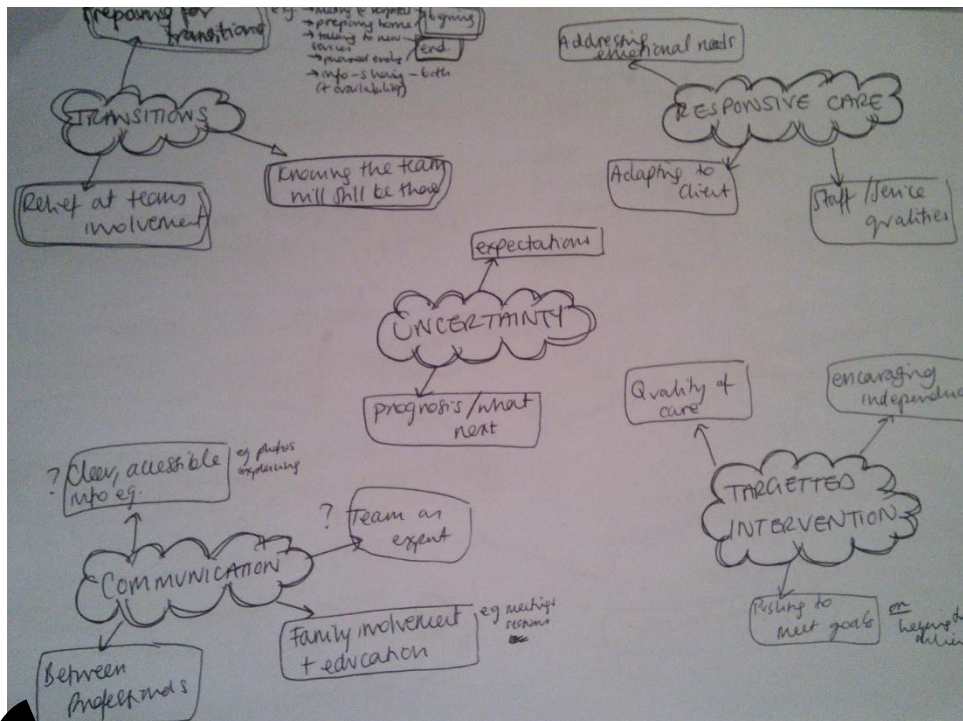 Preparing for
transitions
eg
→ preparing home
→ talking to new
→ planned ends
→ info-sharing - both
(+ availability)
end
TRANSITIONS
Relief at teams
involvement
Knowing the team
will still be there
Addressing
emotional needs
RESPONSIVE CARE
Adapting to
client
Staff/service
qualities
expectations
UNCERTAINTY
prognosis/what
next
Quality of
care
encouraging
TARGETTED
INTERVENTION
Pushing to
meet goals
on
? Clear, accessible
info eg.
eg photos
explaining
? Team as
expert
COMMUNICATION
Family involvement
+ education
eg meetings
Between
Professionals